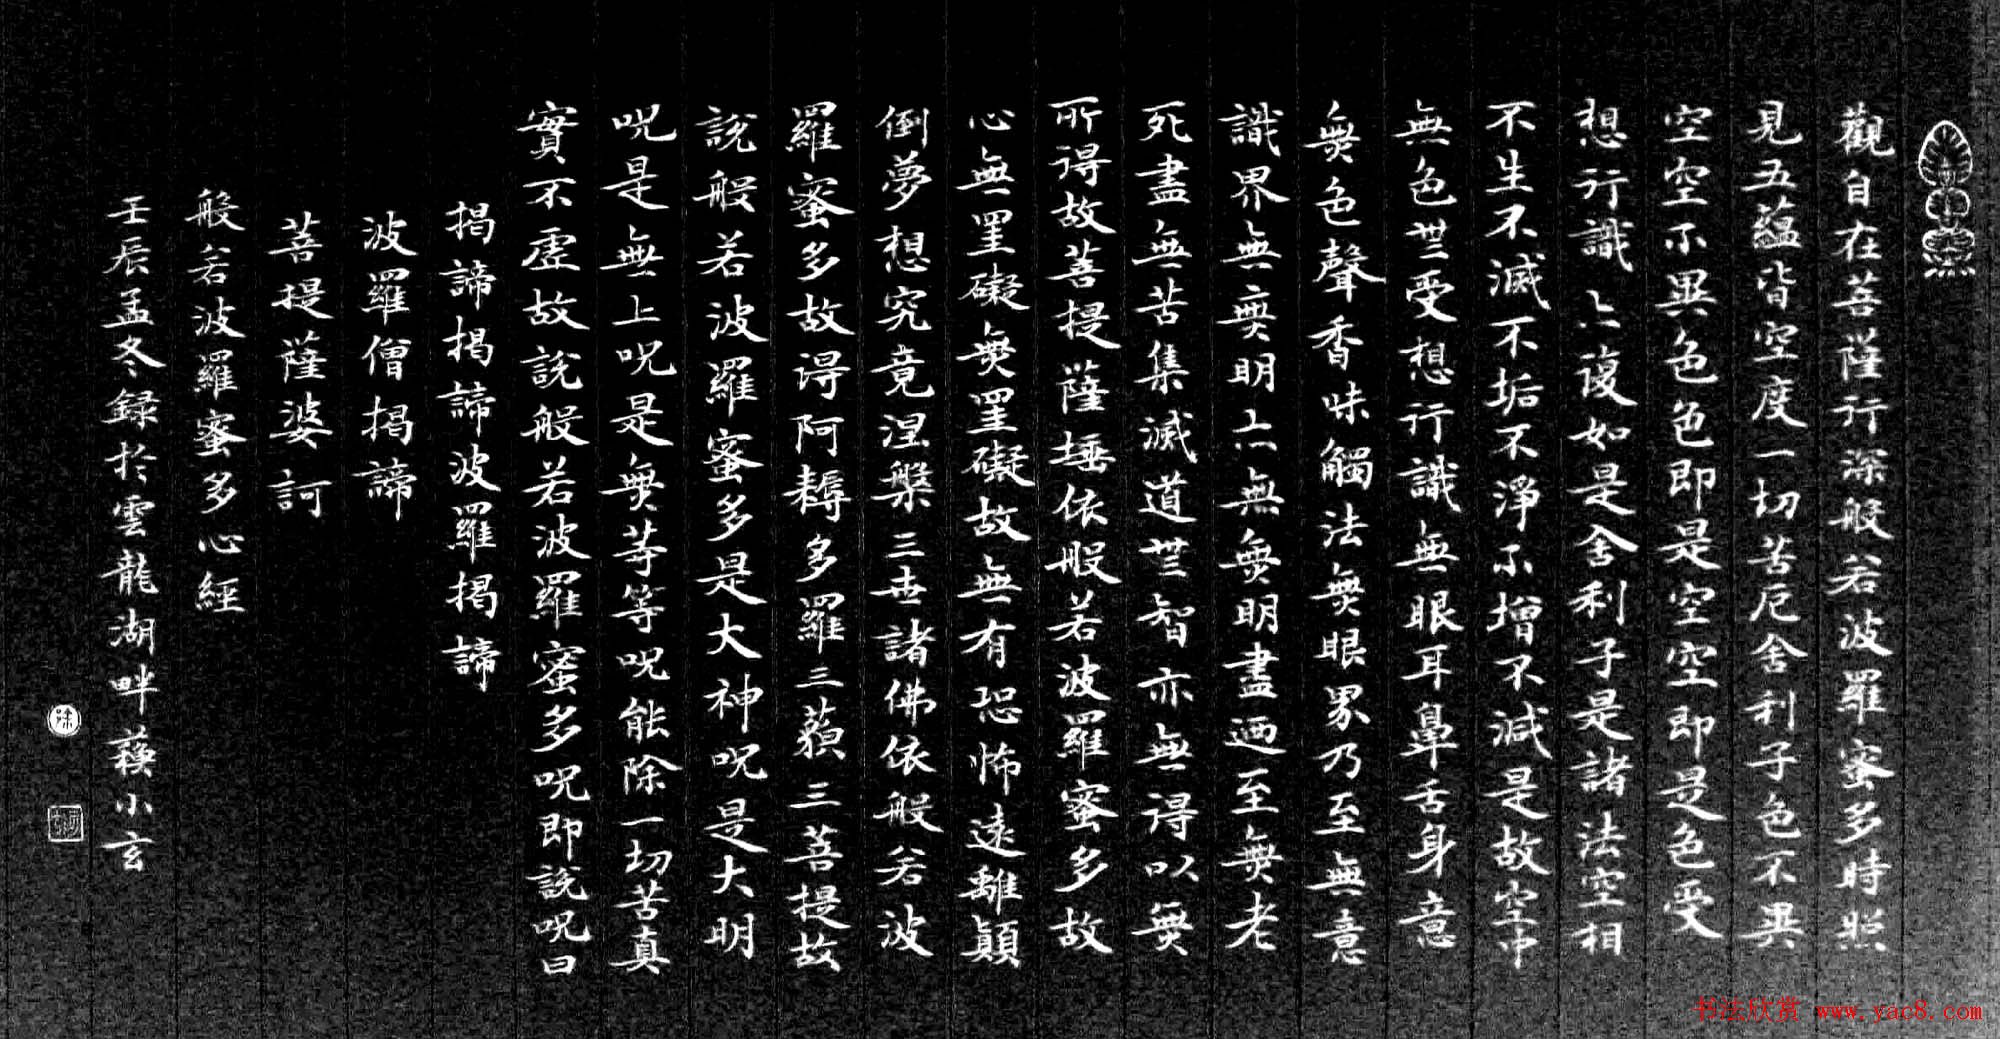 觀自在菩薩行深般若波羅蜜多時照
見五蘊皆空度一切苦厄舍利子色不異
空空不異色色即是空空即是色受
想行識亦復如是舍利子是諸法空相
不生不滅不垢不淨不增不減是故空中
無色無受想行識無眼耳鼻舌身意
無色聲香味觸法無眼界乃至無意
識界無無明亦無無明盡迺至無老
死盡無苦集滅道無智亦無得以無
所得故菩提薩埵依般若波羅蜜多故
心無罣礙無罣礙故無有恐怖遠離顛
倒夢想究竟涅槃三世諸佛依般若波
羅蜜多故得阿耨多羅三藐三菩提故
說般若波羅蜜多是大神呪是大明
呪是無上呪是無等等呪能除一切苦真
實不虛故說般若波羅蜜多呪即說呪曰
揭諦揭諦波羅揭諦
波羅僧揭諦
菩提薩婆訶
般若波羅蜜多心經
壬辰孟冬録於雲龍湖畔蘇小玄
书法欣赏 www.yac8.com